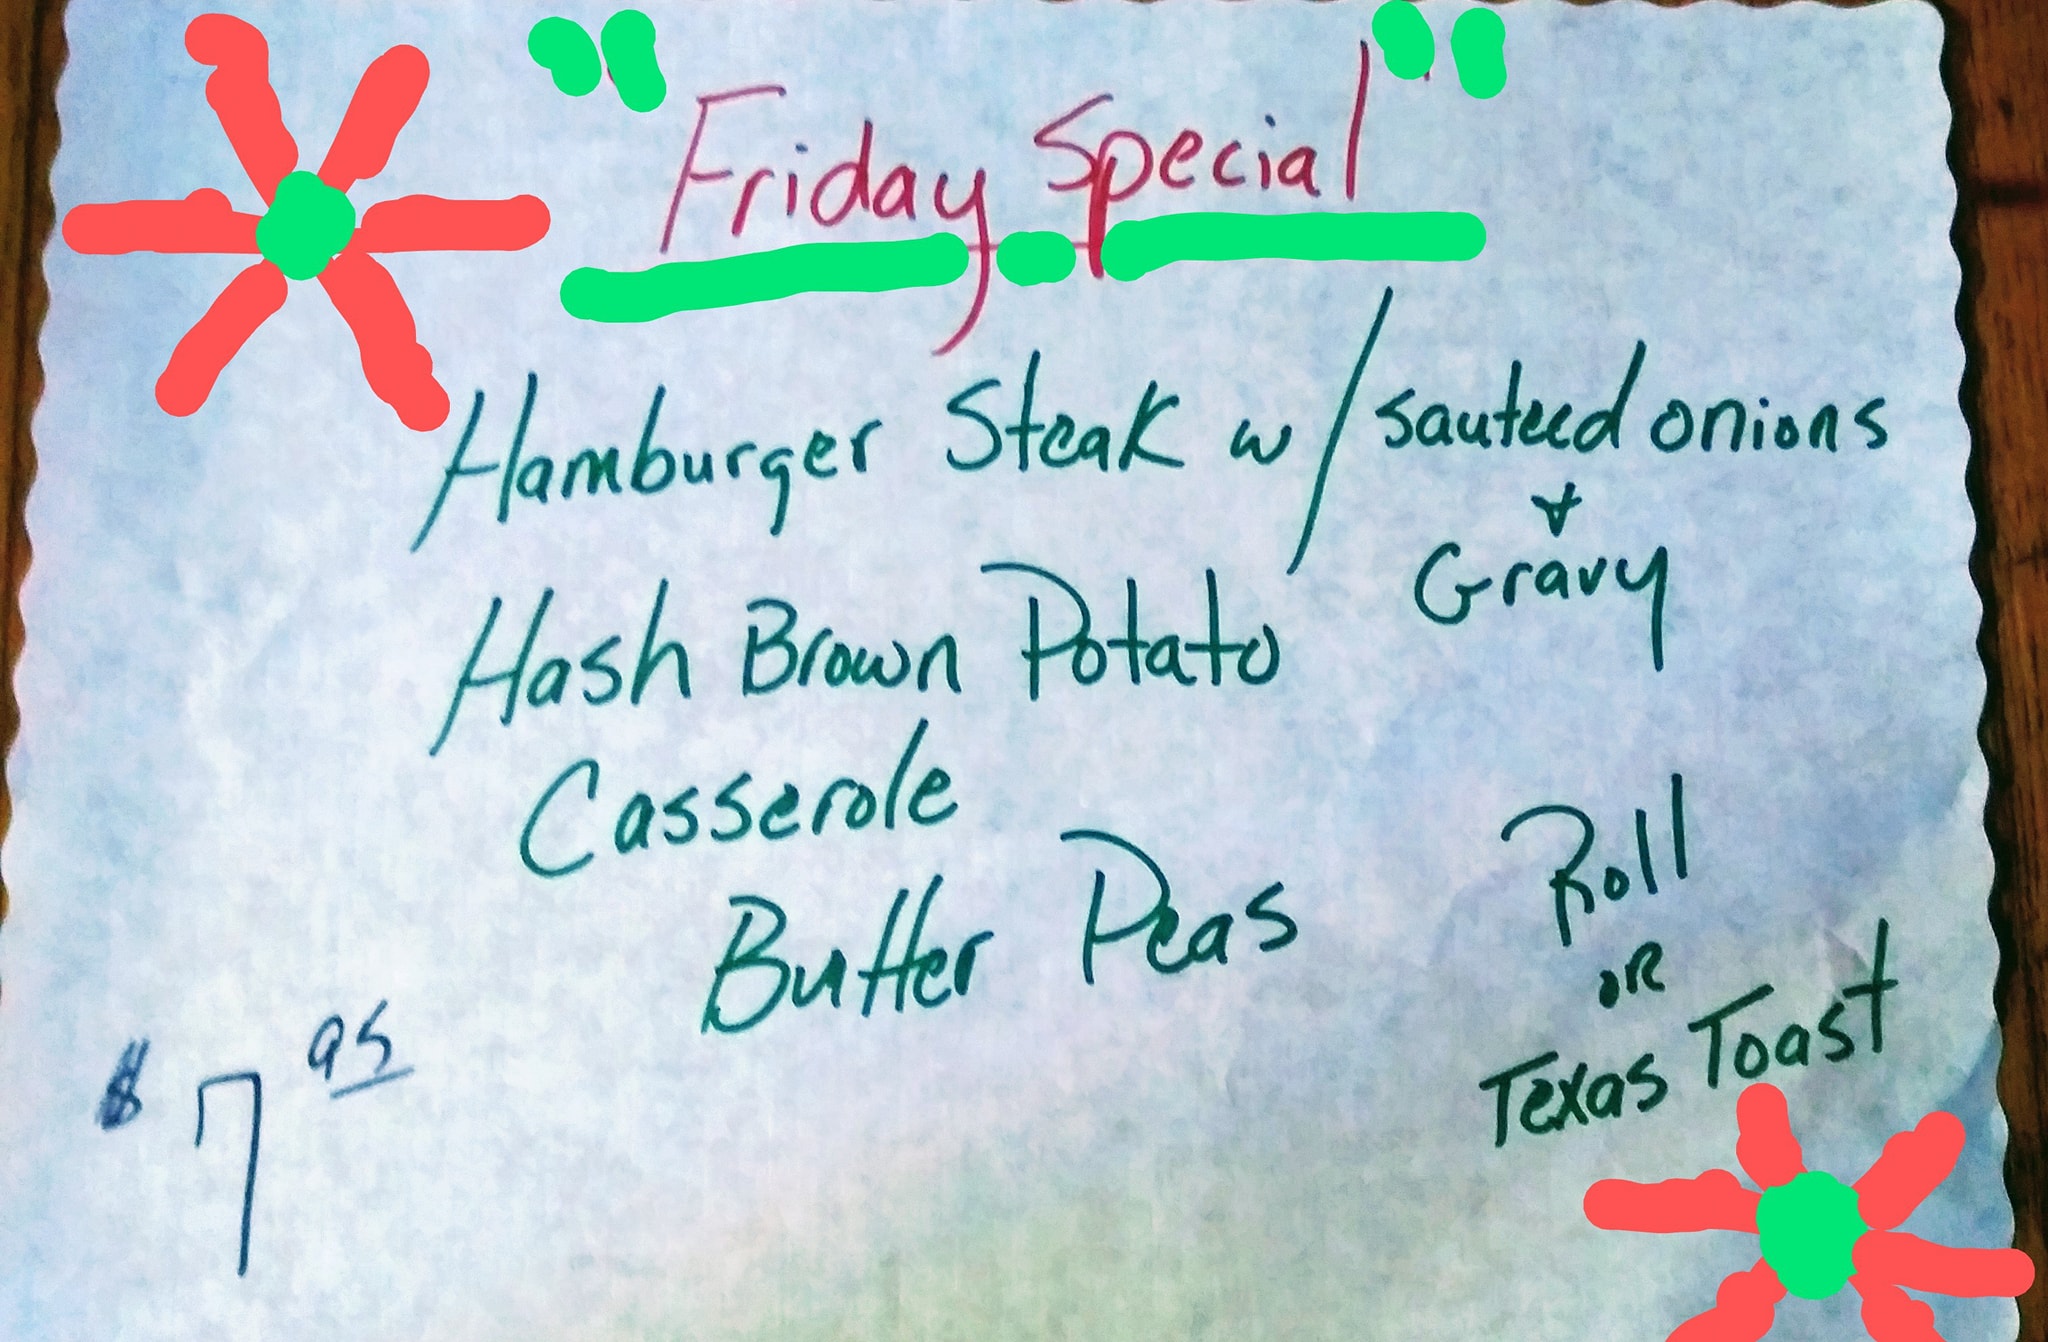 "Friday Special"
Hamburger Steak w/ sauteed onions
+
Gravy
Hash Brown Potato
Casserole
Butter Peas
Roll
OR
Texas Toast
$7 95